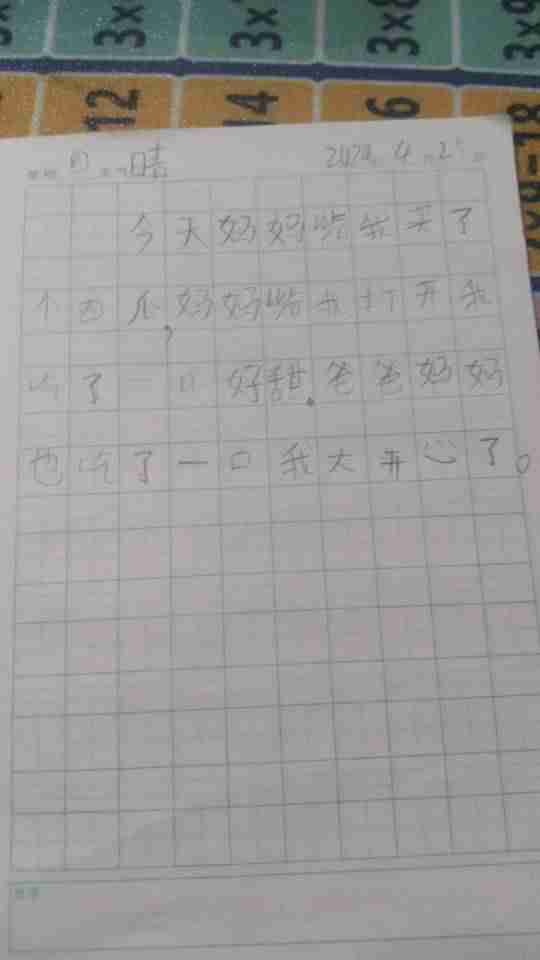 3x 3x 3x8 3x9
12 14 6 18
日 晴 4 2
今天妈妈给我买了
个西瓜,妈妈给我打开我
吃了一口好甜.爸爸妈妈
也吃了一口我太开心了。